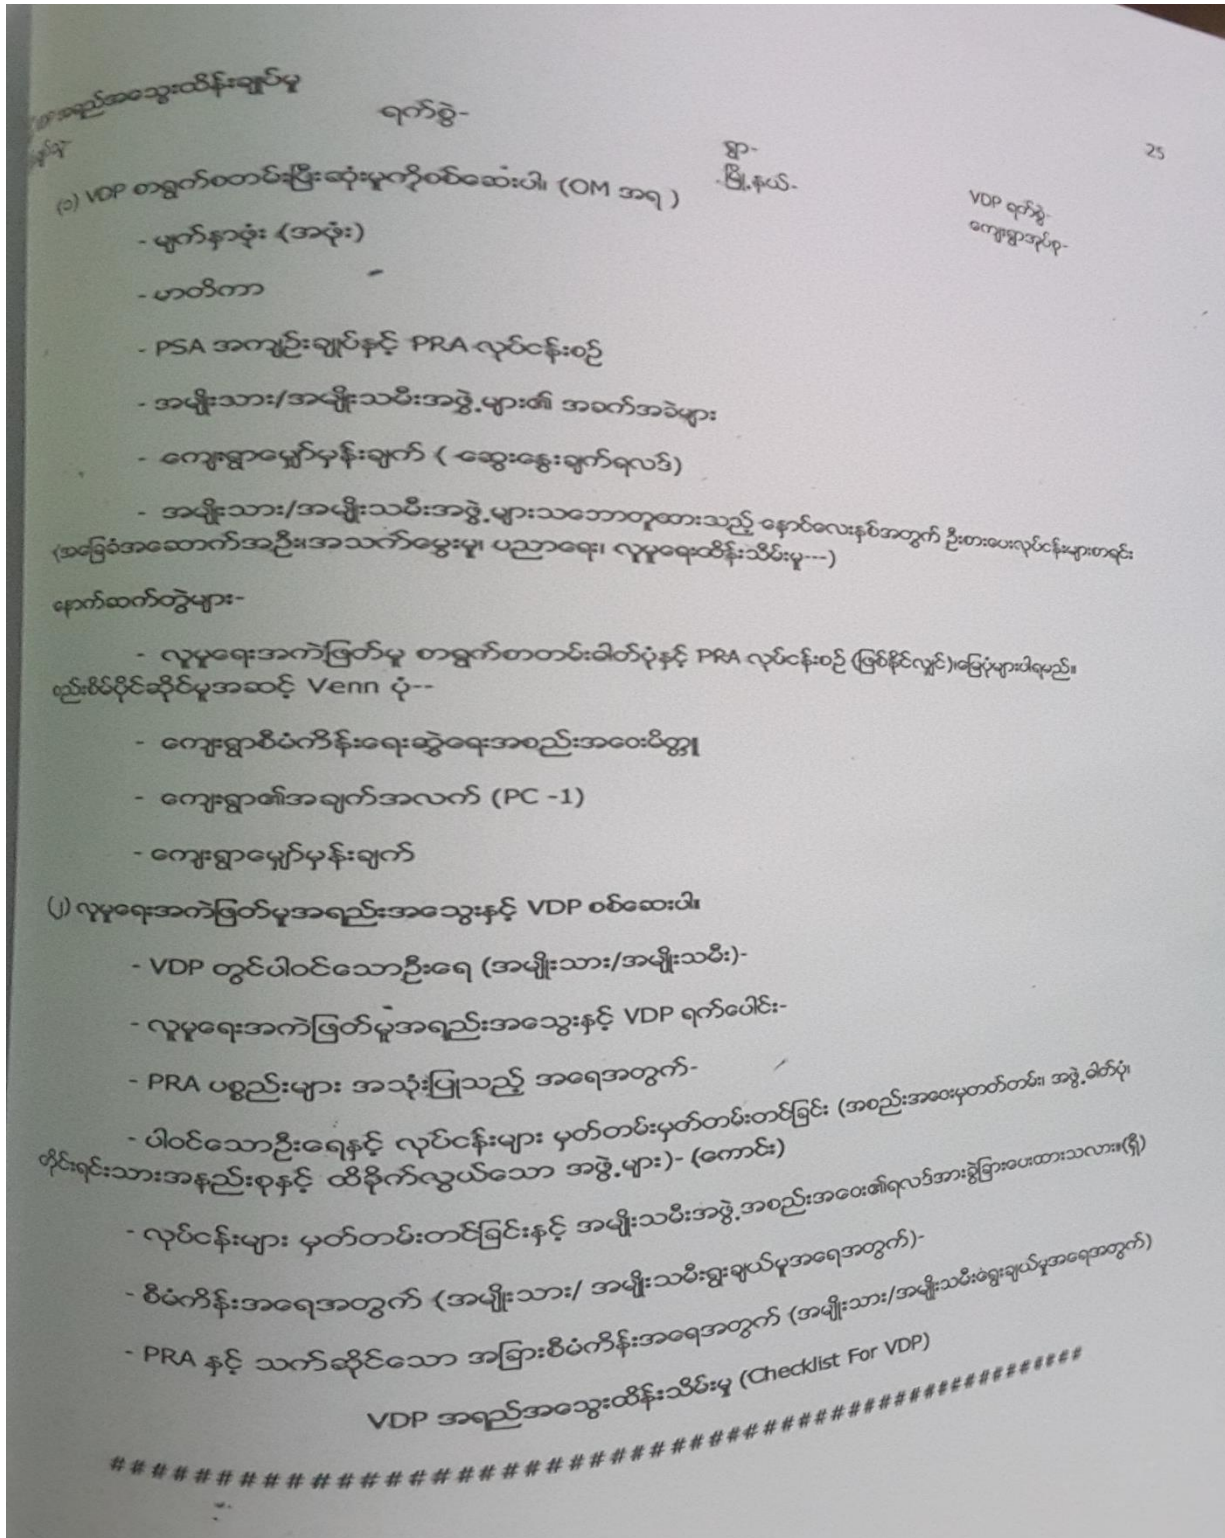 အရည်အသွေးထိန်းချုပ်မှု
ရက်စွဲ-
ရွာ-
25
-မြို့နယ်-
VDP ရက်စွဲ-
ကျေးရွာအုပ်စု-
(၁) VDP စာရွက်စတမ်းပြီးဆုံးမှုကိုစစ်ဆေးပါ၊ (OM အရ )
- မျက်နှာဖုံး (အဖုံး)
- မာတိကာ
- PSA အကျဉ်းချုပ်နှင့် PRA လုပ်ငန်းစဉ်
- အမျိုးသား/အမျိုးသမီးအဖွဲ့များ၏ အခက်အခဲများ
- ကျေးရွာမျှော်မှန်းချက် ( ဆွေးနွေးချက်ရလဒ်)
- အမျိုးသား/အမျိုးသမီးအဖွဲ့များသဘောတူထားသည့် နောင်လေးနှစ်အတွက် ဦးစားပေးလုပ်ငန်းများစာရင်း
(အခြေခံအဆောက်အဦး၊အသက်မွေးမှု၊ ပညာရေး၊ လူမှုရေးထိန်းသိမ်းမှု---)
နောက်ဆက်တွဲများ-
- လူမှုရေးအကဲဖြတ်မှု စာရွက်စာတမ်းဓါတ်ပုံနှင့် PRA လုပ်ငန်းစဉ် (ဖြစ်နိုင်လျှင်)၊မြေပုံများပါရမည်။
စည်းစိမ်ပိုင်ဆိုင်မှုအဆင့် Venn ပုံ--
- ကျေးရွာစီမံကိန်းရေးဆွဲရေးအစည်းအဝေးမိတ္တူ
- ကျေးရွာ၏အချက်အလက် (PC -1)
- ကျေးရွာမျှော်မှန်းချက်
(၂) လူမှုရေးအကဲဖြတ်မှုအရည်းအသွေးနှင့် VDP စစ်ဆေးပါ။
- VDP တွင်ပါဝင်သောဦးရေ (အမျိုးသား/အမျိုးသမီး)-
- လူမှုရေးအကဲဖြတ်မှုအရည်းအသွေးနှင့် VDP ရက်ပေါင်း-
- PRA ပစ္စည်းများ အသုံးပြုသည့် အရေအတွက်-
- ပါဝင်သောဦးရေနှင့် လုပ်ငန်းများ မှတ်တမ်းမှတ်တမ်းတင်ခြင်း (အစည်းအဝေးမှတတ်တမ်း၊ အဖွဲ့ဓါတ်ပုံ၊
တိုင်းရင်းသားအနည်းစုနှင့် ထိခိုက်လွယ်သော အဖွဲ့များ)- (ကောင်း)
- လုပ်ငန်းများ မှတ်တမ်းတင်ခြင်းနှင့် အမျိုးသမီးအဖွဲ့အစည်းအဝေး၏ရလဒ်အားခွဲခြားပေးထားသလား။(ရှိ)
- စီမံကိန်းအရေအတွက် (အမျိုးသား/ အမျိုးသမီးရွးချယ်မှုအရေအတွက်)-
- PRA နှင့် သက်ဆိုင်သော အခြားစီမံကိန်းအရေအတွက် (အမျိုးသား/အမျိုးသမီးရွေးချယ်မှုအရေအတွက်)
VDP အရည်အသွေးထိန်းသိမ်းမှု (Checklist For VDP)
##########################################